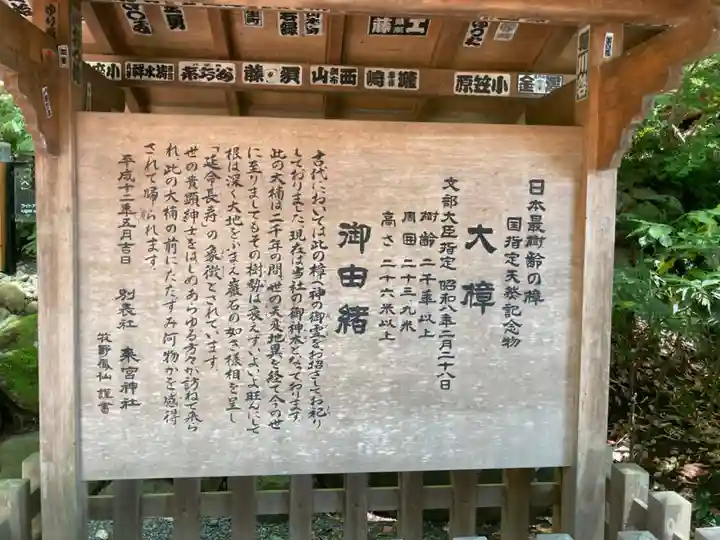 日本最樹齢の樟
国指定天然記念物
大樟
文部大臣指定 昭和八年二月二十八日
樹齢 二千年以上
周囲 二十三、九米
高さ 二十六米以上
御由緒
古代においては此の樟へ神の御霊をお招きしてお祀り
しておりました。現在は当社の御神木となっております
此の大楠は二千年の間世の天変地異を経て今の世
に至りましてもその樹勢は衰えずいよいよ旺んにして
根は深く大地をふまえ巌石の如き様相を呈し
「延命長寿」の象徴とされています。
世の貴顕紳士をはじめあらゆる方々が訪ねて来ら
れ、此の大楠の前にたたずみ何物かを感得
されて帰られます。
平成十二年五月吉日
別表社 来宮神社
牧野鳳仙 謹書
小笠原
瀧崎
西山
須藤